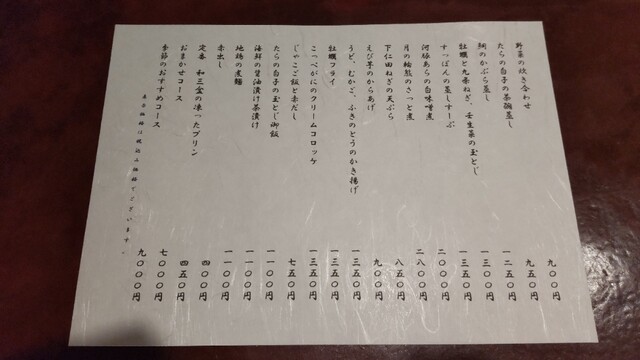 野菜の炊き合わせ 九〇〇円
たらの白子の茶碗蒸し 九五〇円
鯛のかぶら蒸し 一二五〇円
牡蠣と九条ねぎ、壬生菜の玉とじ 一三〇〇円
すっぽんの蒸しすーぷ 一三五〇円
河豚あらの白味噌煮 二〇〇〇円
月の輪熊のさっと煮 二八〇〇円
下仁田ねぎの天ぷら 八五〇円
えび芋のからあげ 九〇〇円
うど、むかご、ふきのとうのかき揚げ 一三五〇円
牡蠣フライ 一三五〇円
こっぺがにのクリームコロッケ 一三五〇円
じゃこご飯と赤だし 七五〇円
たらの白子の玉とじ御飯 一一〇〇円
海鮮の醤油漬け茶漬け 一一〇〇円
地鶏の煮麺 一一〇〇円
赤出し 四〇〇円
定番 和三盆の凍ったプリン 四五〇円
おまかせコース 七〇〇〇円
季節のおすすめコース 九〇〇〇円
表示価格は税込み価格でございます。